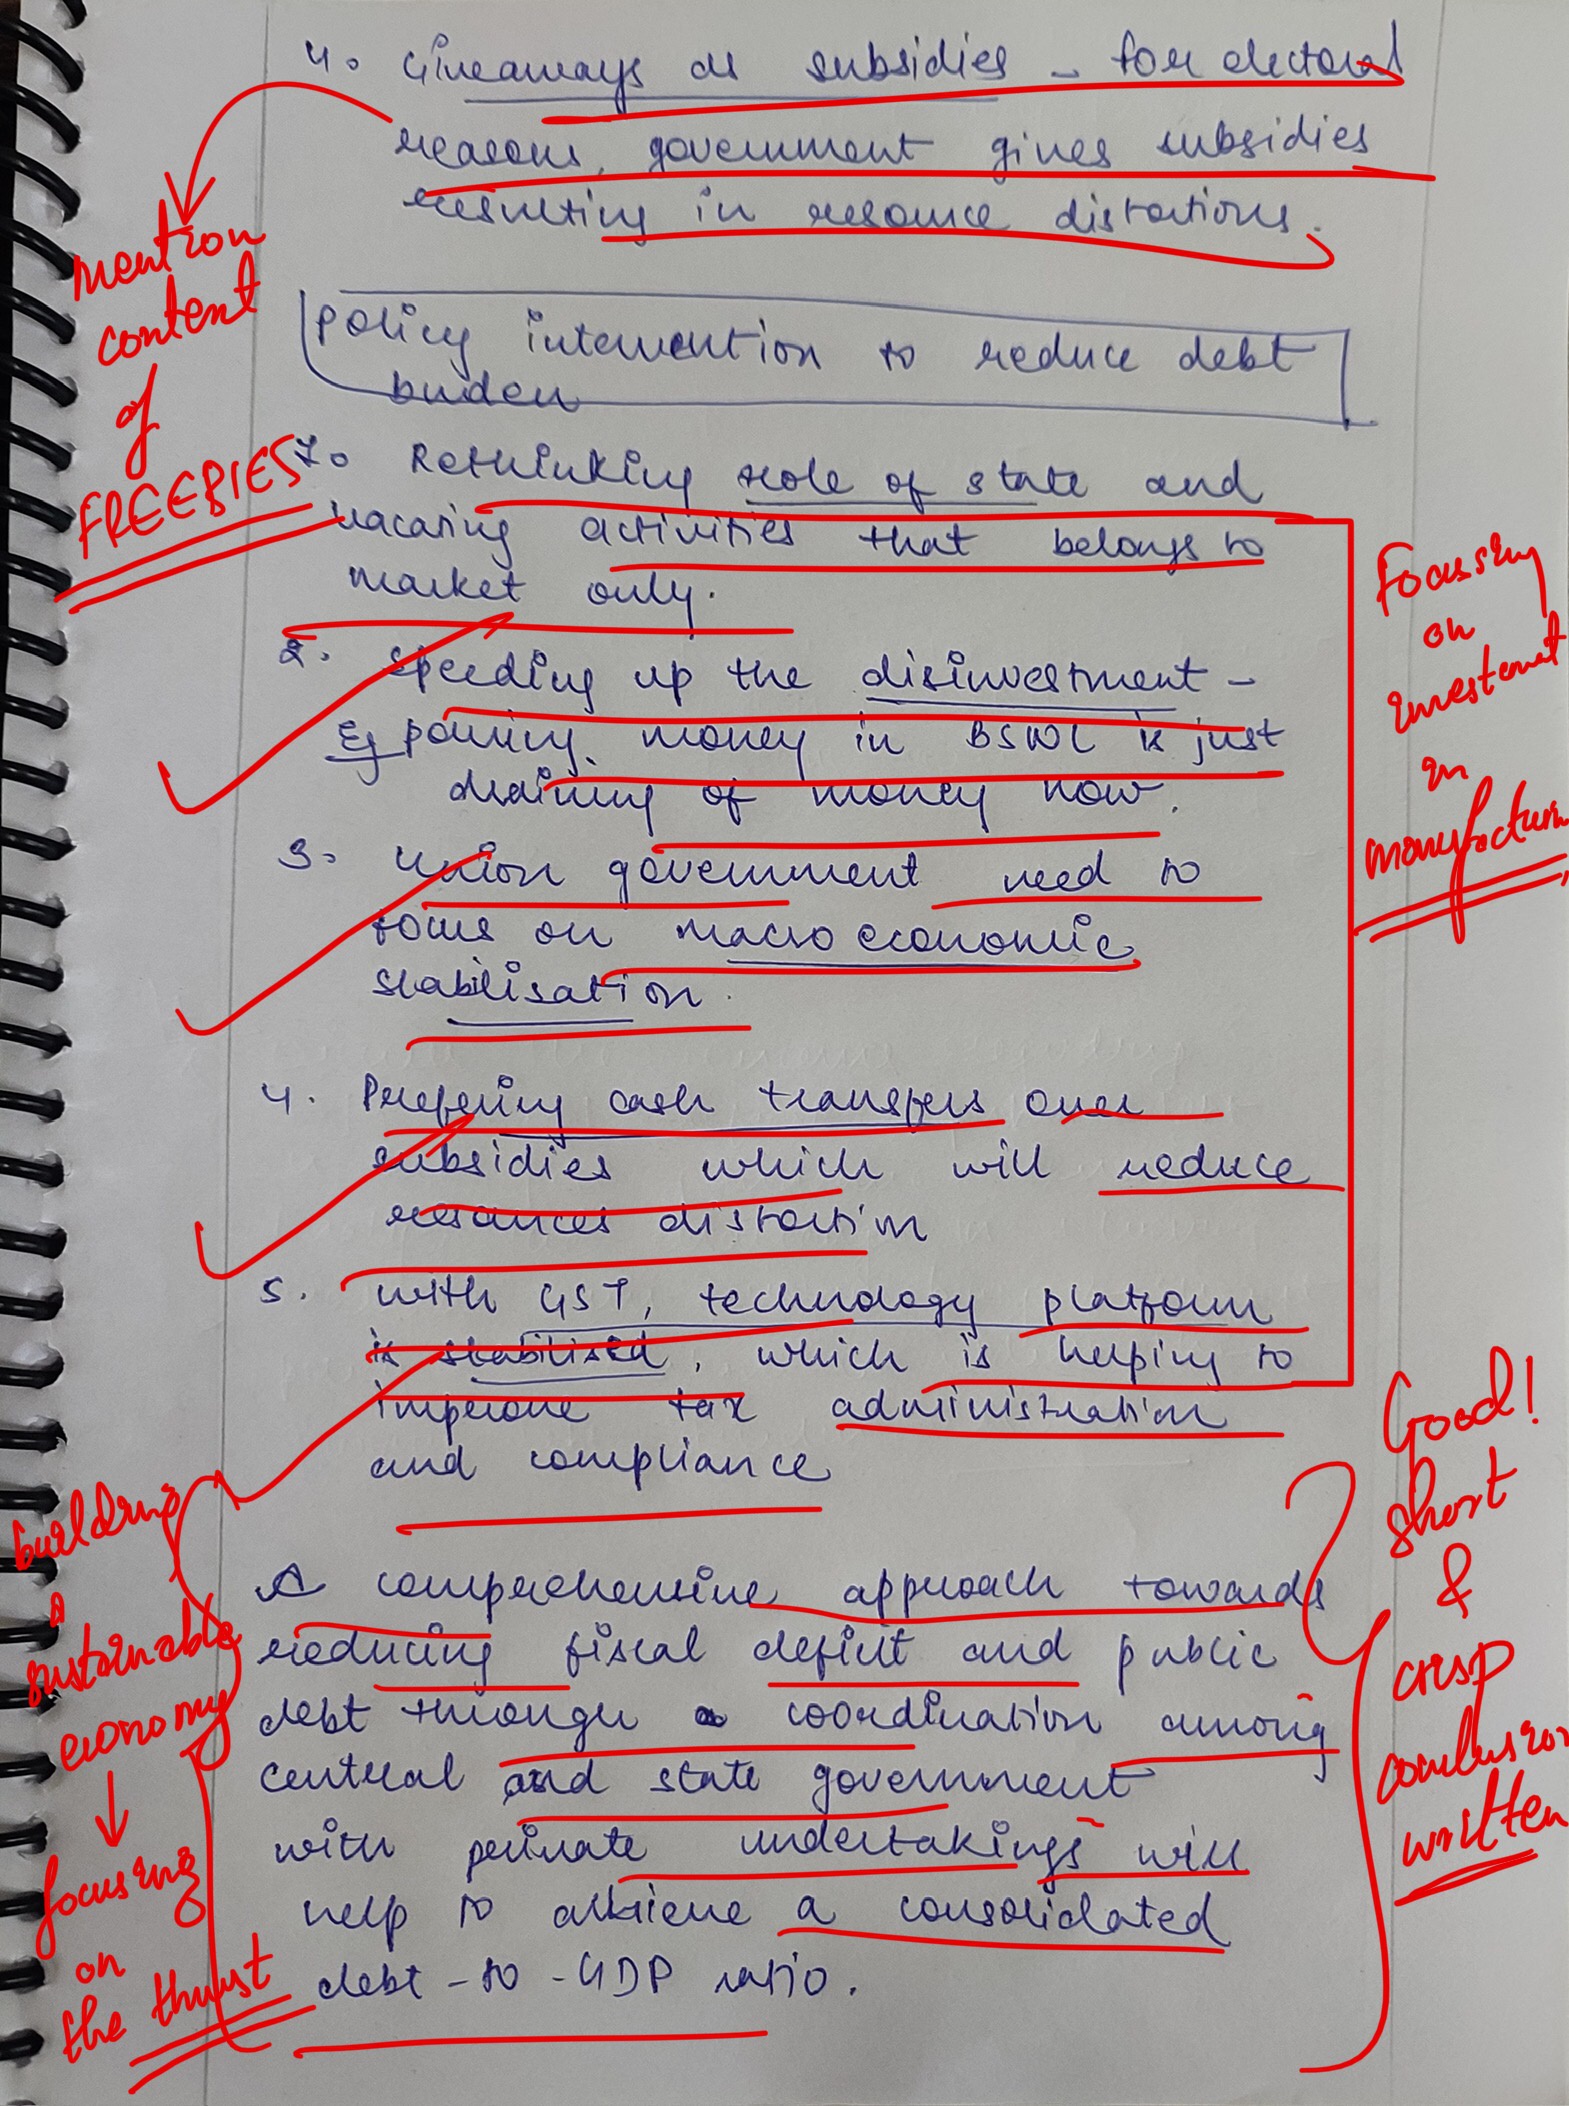 4. Giveaways as subsidies - for electoral
reasons, government gives subsidies
resulting in resource distortions.
mention
content
of
FREEBIES
Policy intervention to reduce debt
burden
1. Rethinking role of state and
vacating activities that belongs to
market only.
2. Speeding up the disinvestment -
Eg pouring money in BSNL is just
draining of money now.
3. Union government need to
focus on macro economic
stabilisation.
4. Prefering cash transfers over
subsidies which will reduce
resources distortion
5. with GST, technology platform
is stabilised, which is helping to
improve tax administration
and compliance
Focussing
on
investemnt
in
manufacturin
A comprehensive approach towards
reducing fiscal deficit and public
debt through a coordination among
central and state government
with private undertakings will
help to achieve a consolidated
debt-to-GDP ratio.
building
a
sustainable
economy
↓
focusing
on
the thrust
Good!
short
&
crisp
conclusion
written